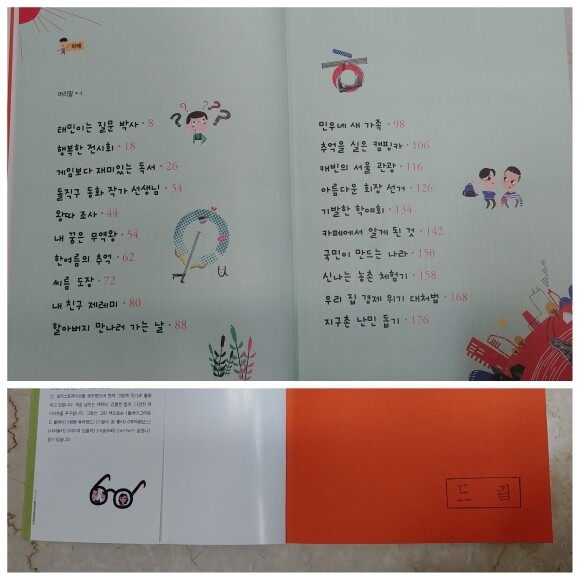 차례
머리말 • 4
태민이는 질문 박사 • 8
행복한 전시회 • 18
게임보다 재미있는 독서 • 26
돌직구 동화 작가 선생님 • 34
왕따 조사 • 44
내 꿈은 무역왕 • 54
한여름의 추억 • 62
씨름 도장 • 72
내 친구 제레미 • 80
할아버지 만나러 가는 날 • 88
민우네 새 가족 • 98
추억을 실은 캠핑카 • 106
캐빈의 서울 관광 • 116
아름다운 회장 선거 • 126
기발한 학예회 • 134
카페에서 알게 된 것 • 142
국민이 만드는 나라 • 150
신나는 농촌 체험기 • 158
우리 집 경제 위기 대처법 • 168
지구촌 난민 돕기 • 176
있습니다.
드림